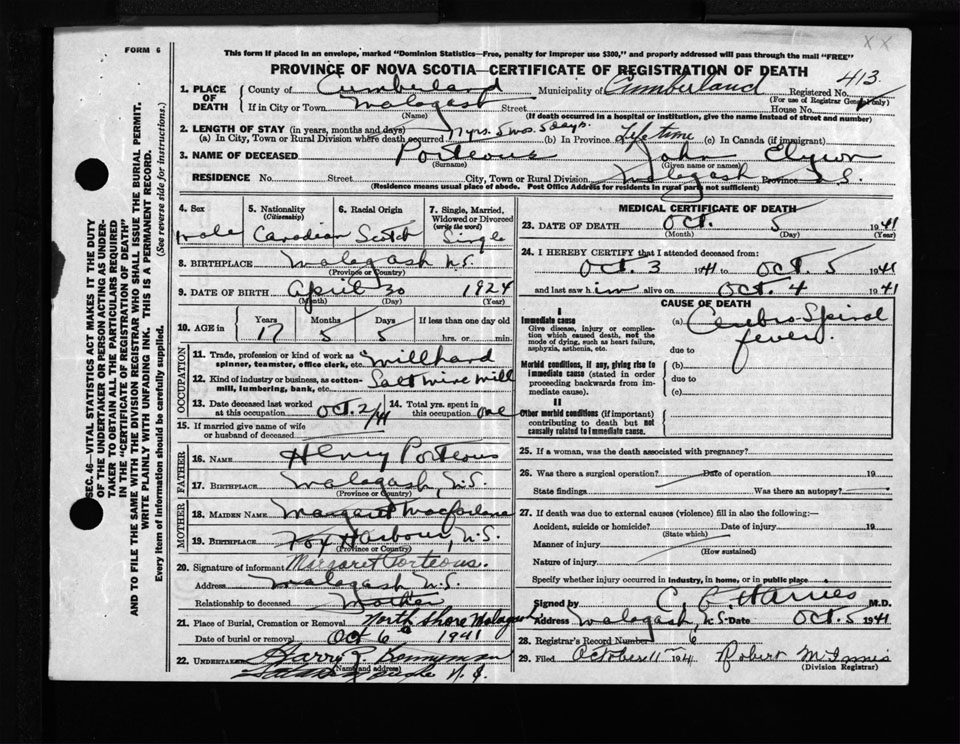 XX
FORM 6
This form if placed in an envelope, marked "Dominion Statistics—Free, penalty for improper use $300," and properly addressed will pass through the mail "FREE"
PROVINCE OF NOVA SCOTIA—CERTIFICATE OF REGISTRATION OF DEATH
413
1. PLACE OF DEATH
County of Cumberland Municipality of Cumberland Registered No.
(For use of Registrar General only)
If in City or Town Malagash Street House No.
(Name) (If death occurred in a hospital or institution, give the name instead of street and number)
2. LENGTH OF STAY (in years, months and days)
(a) In City, Town or Rural Division where death occurred 17 yrs. 5 mos. 5 days. (b) In Province Lifetime (c) In Canada (if immigrant)
3. NAME OF DECEASED Porteous John
(Surname) (Given name or names)
RESIDENCE No. Street City, Town or Rural Division Malagash Province N.S.
(Residence means usual place of abode. Post Office Address for residents in rural parts not sufficient)
4. Sex 5. Nationality (Citizenship) 6. Racial Origin 7. Single, Married, Widowed or Divorced (write the word)
male Canadian Scotch Single
8. BIRTHPLACE Malagash N.S.
(Province or Country)
9. DATE OF BIRTH April 30 1924
(Month) (Day) (Year)
10. AGE in Years Months Days If less than one day old
17 5 5 hrs. or min.
OCCUPATION
11. Trade, profession or kind of work as spinner, teamster, office clerk, etc. millhand
12. Kind of industry or business, as cotton-mill, lumbering, bank, etc. Salt mine mill
13. Date deceased last worked at this occupation Oct. 2/41 14. Total yrs. spent in this occupation one
15. If married give name of wife or husband of deceased
FATHER
16. NAME Henry Porteous
17. BIRTHPLACE Malagash, N.S.
(Province or Country)
MOTHER
18. MAIDEN NAME Margaret Macfarlane
19. BIRTHPLACE Fox Harbour, N.S.
(Province or Country)
20. Signature of informant Margaret Porteous.
Address Malagash N.S.
Relationship to deceased Mother
21. Place of Burial, Cremation or Removal North Shore Malagash
Date of burial or removal Oct 6 1941
22. UNDERTAKER Harry
(Name and address) N.S.
MEDICAL CERTIFICATE OF DEATH
23. DATE OF DEATH Oct. 5 1941
(Month) (Day) (Year)
24. I HEREBY CERTIFY that I attended deceased from:
Oct. 3 1941 to Oct. 5 1941
and last saw him alive on Oct. 4 1941
CAUSE OF DEATH
I
Immediate cause
Give disease, injury or complication which caused death, not the mode of dying, such as heart failure, asphyxia, asthenia, etc.
(a) Cerebro-Spinal
fever
due to
Morbid conditions, if any, giving rise to immediate cause (stated in order proceeding backwards from immediate cause).
(b)
due to
(c)
II
Other morbid conditions (if important) contributing to death but not causally related to immediate cause.
25. If a woman, was the death associated with pregnancy?
26. Was there a surgical operation? Date of operation 19
State findings Was there an autopsy?
27. If death was due to external causes (violence) fill in also the following:—
Accident, suicide or homicide? Date of injury 19
(State which)
Manner of injury
(How sustained)
Nature of injury
Specify whether injury occurred in industry, in home, or in public place
Signed by Harries M.D.
Address Malagash, N.S. Date Oct. 5 1941
28. Registrar's Record Number 6
29. Filed October 11 1941 Robert McInnis
(Division Registrar)
SEC. 46—VITAL STATISTICS ACT MAKES IT THE DUTY
OF THE UNDERTAKER OR PERSON ACTING AS UNDER-
TAKER TO OBTAIN ALL THE PARTICULARS REQUIRED
IN THE "CERTIFICATE OF REGISTRATION OF DEATH"
AND TO FILE THE SAME WITH THE DIVISION REGISTRAR WHO SHALL ISSUE THE BURIAL PERMIT.
WRITE PLAINLY WITH UNFADING INK. THIS IS A PERMANENT RECORD.
Every item of information should be carefully supplied. (See reverse side for instructions.)